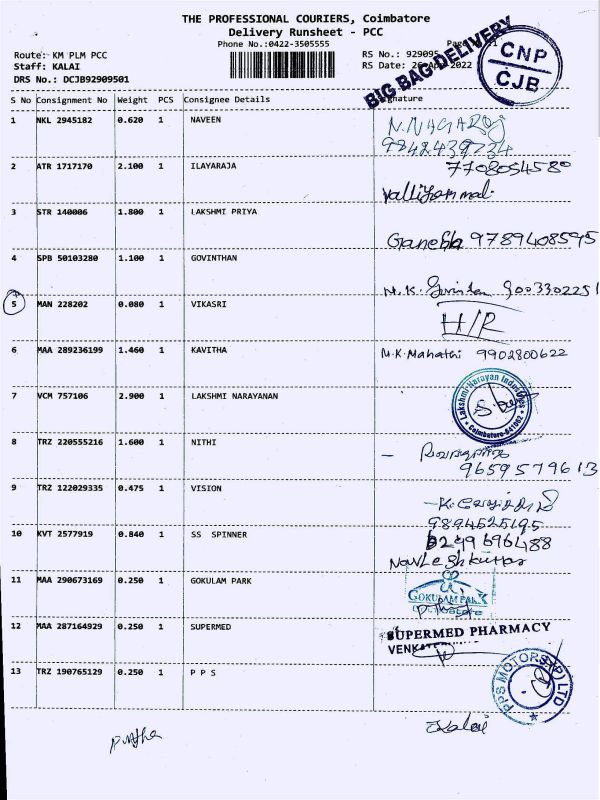 THE PROFESSIONAL COURIERS, Coimbatore
Delivery Runsheet - PCC
Phone No.:0422-3505555
Route: KM PLM PCC
RS No.: 929095
Staff: KALAI
RS Date: 26-Apr-2022
DRS No.: DCJB92909501
BIG BAG DELIVERY
CNP
CJB
S No Consignment No Weight PCS Consignee Details Signature
1 NKL 2945182 0.620 1 NAVEEN N.NAGARAJ
9842439734
2 ATR 1717170 2.100 1 ILAYARAJA 7708054580
Valliyammal
3 STR 140006 1.800 1 LAKSHMI PRIYA
Ganesh 9789408595
4 SPB 50103280 1.100 1 GOVINTHAN
M.K. Govindan 9003302251
5 MAN 228202 0.080 1 VIKASRI H/R
6 MAA 289236199 1.460 1 KAVITHA M.K.Mahathi 9902800622
7 VCM 757106 2.900 1 LAKSHMI NARAYANAN
Lakshmi Narayan Industries
Coimbatore-641062
8 TRZ 220555216 1.600 1 NITHI
9659579613
9 TRZ 122029335 0.475 1 VISION
9894525195
10 KVT 2577919 0.840 1 SS SPINNER 8249696488
Navleshkumar
11 MAA 290673169 0.250 1 GOKULAM PARK
GOKULAM PARK
COIMBATORE
12 MAA 287164929 0.250 1 SUPERMED SUPERMED PHARMACY
13 TRZ 190765129 0.250 1 P P S
PPS MOTORS (P) LTD
Kalai